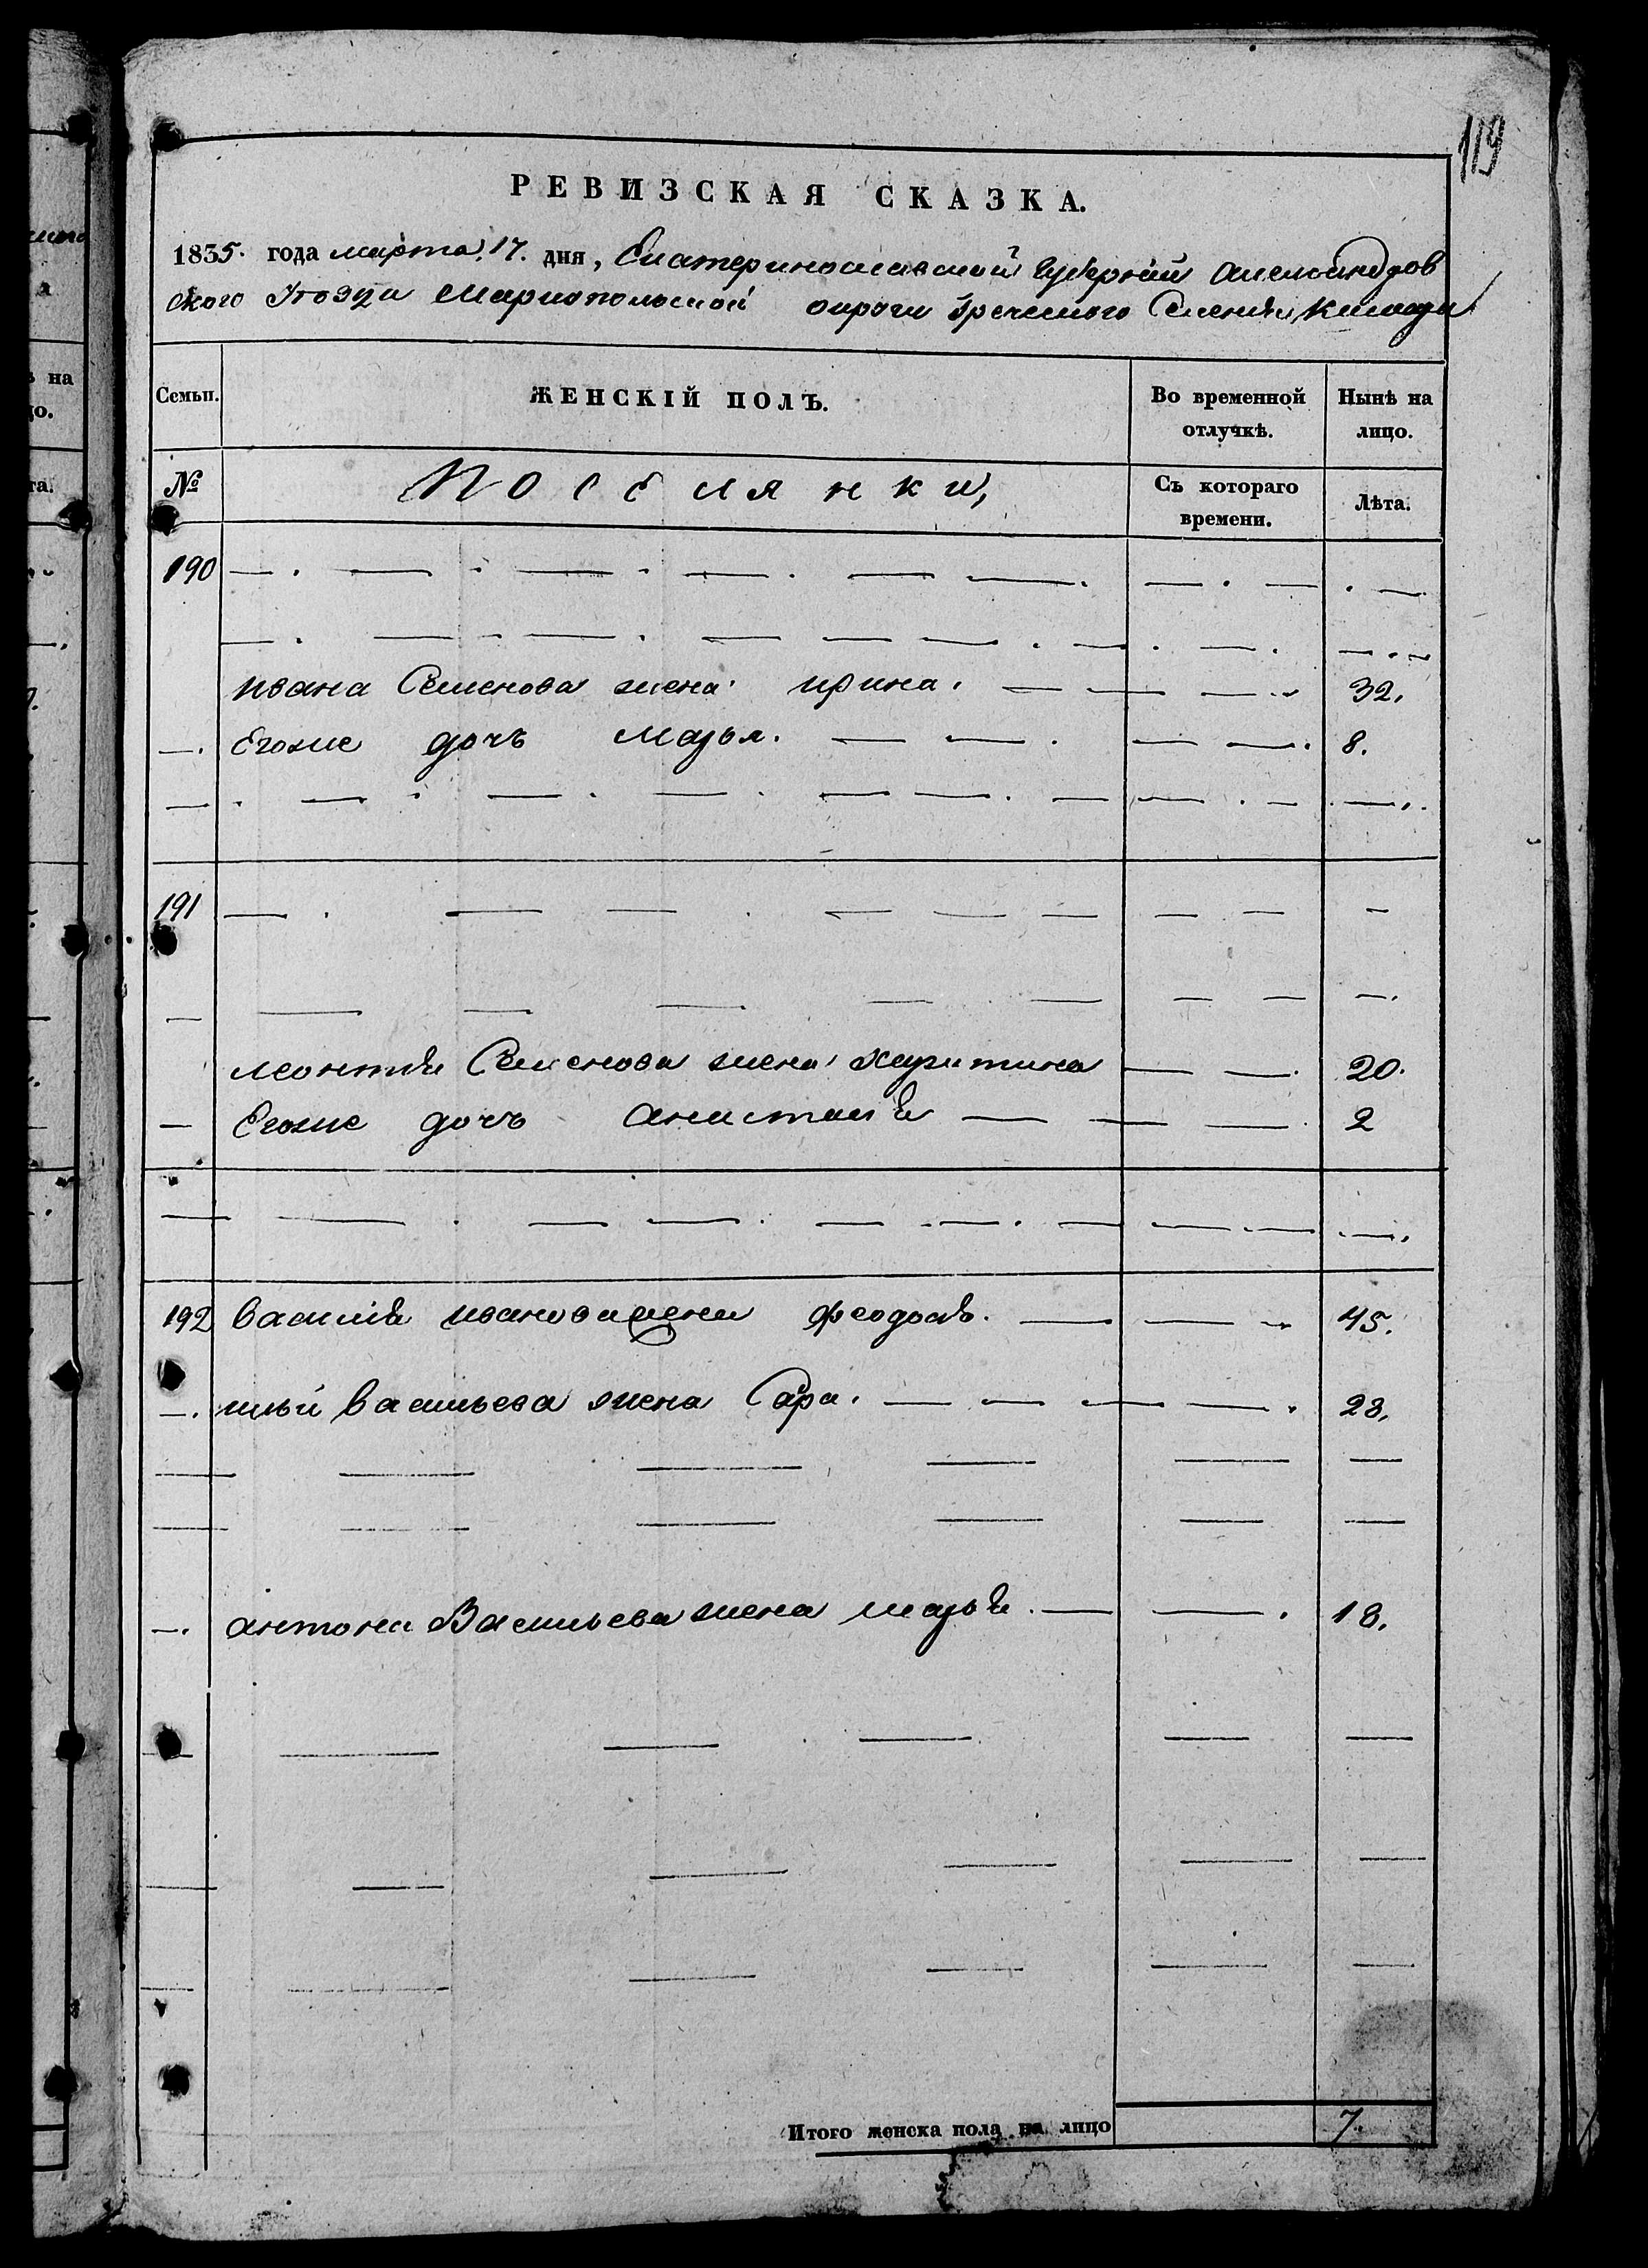 119
РЕВИЗСКАЯ СКАЗКА.
1835. года марта 17. дня, Екатеринославской Губернии Александров
ского Уѣзда Мариопольской округи греческого Селения
Семьи. ЖЕНСКІЙ ПОЛЪ. Во временной отлучкѣ. Нынѣ на лицо.
№ Поселянки, Съ котораго времени. Лѣта.
190
ивана Семенова жена ирина. 32.
Егоже дочь марья. 8.
191
леонтия Семенова жена харитина 20.
Егоже дочь анастасия 2
192 василия иванова жена феодосия. 45.
ильи васильева жена Сара. 28.
антона Васильева жена марья. 18.
Итого женска пола на лицо 7.
на
го.
та.